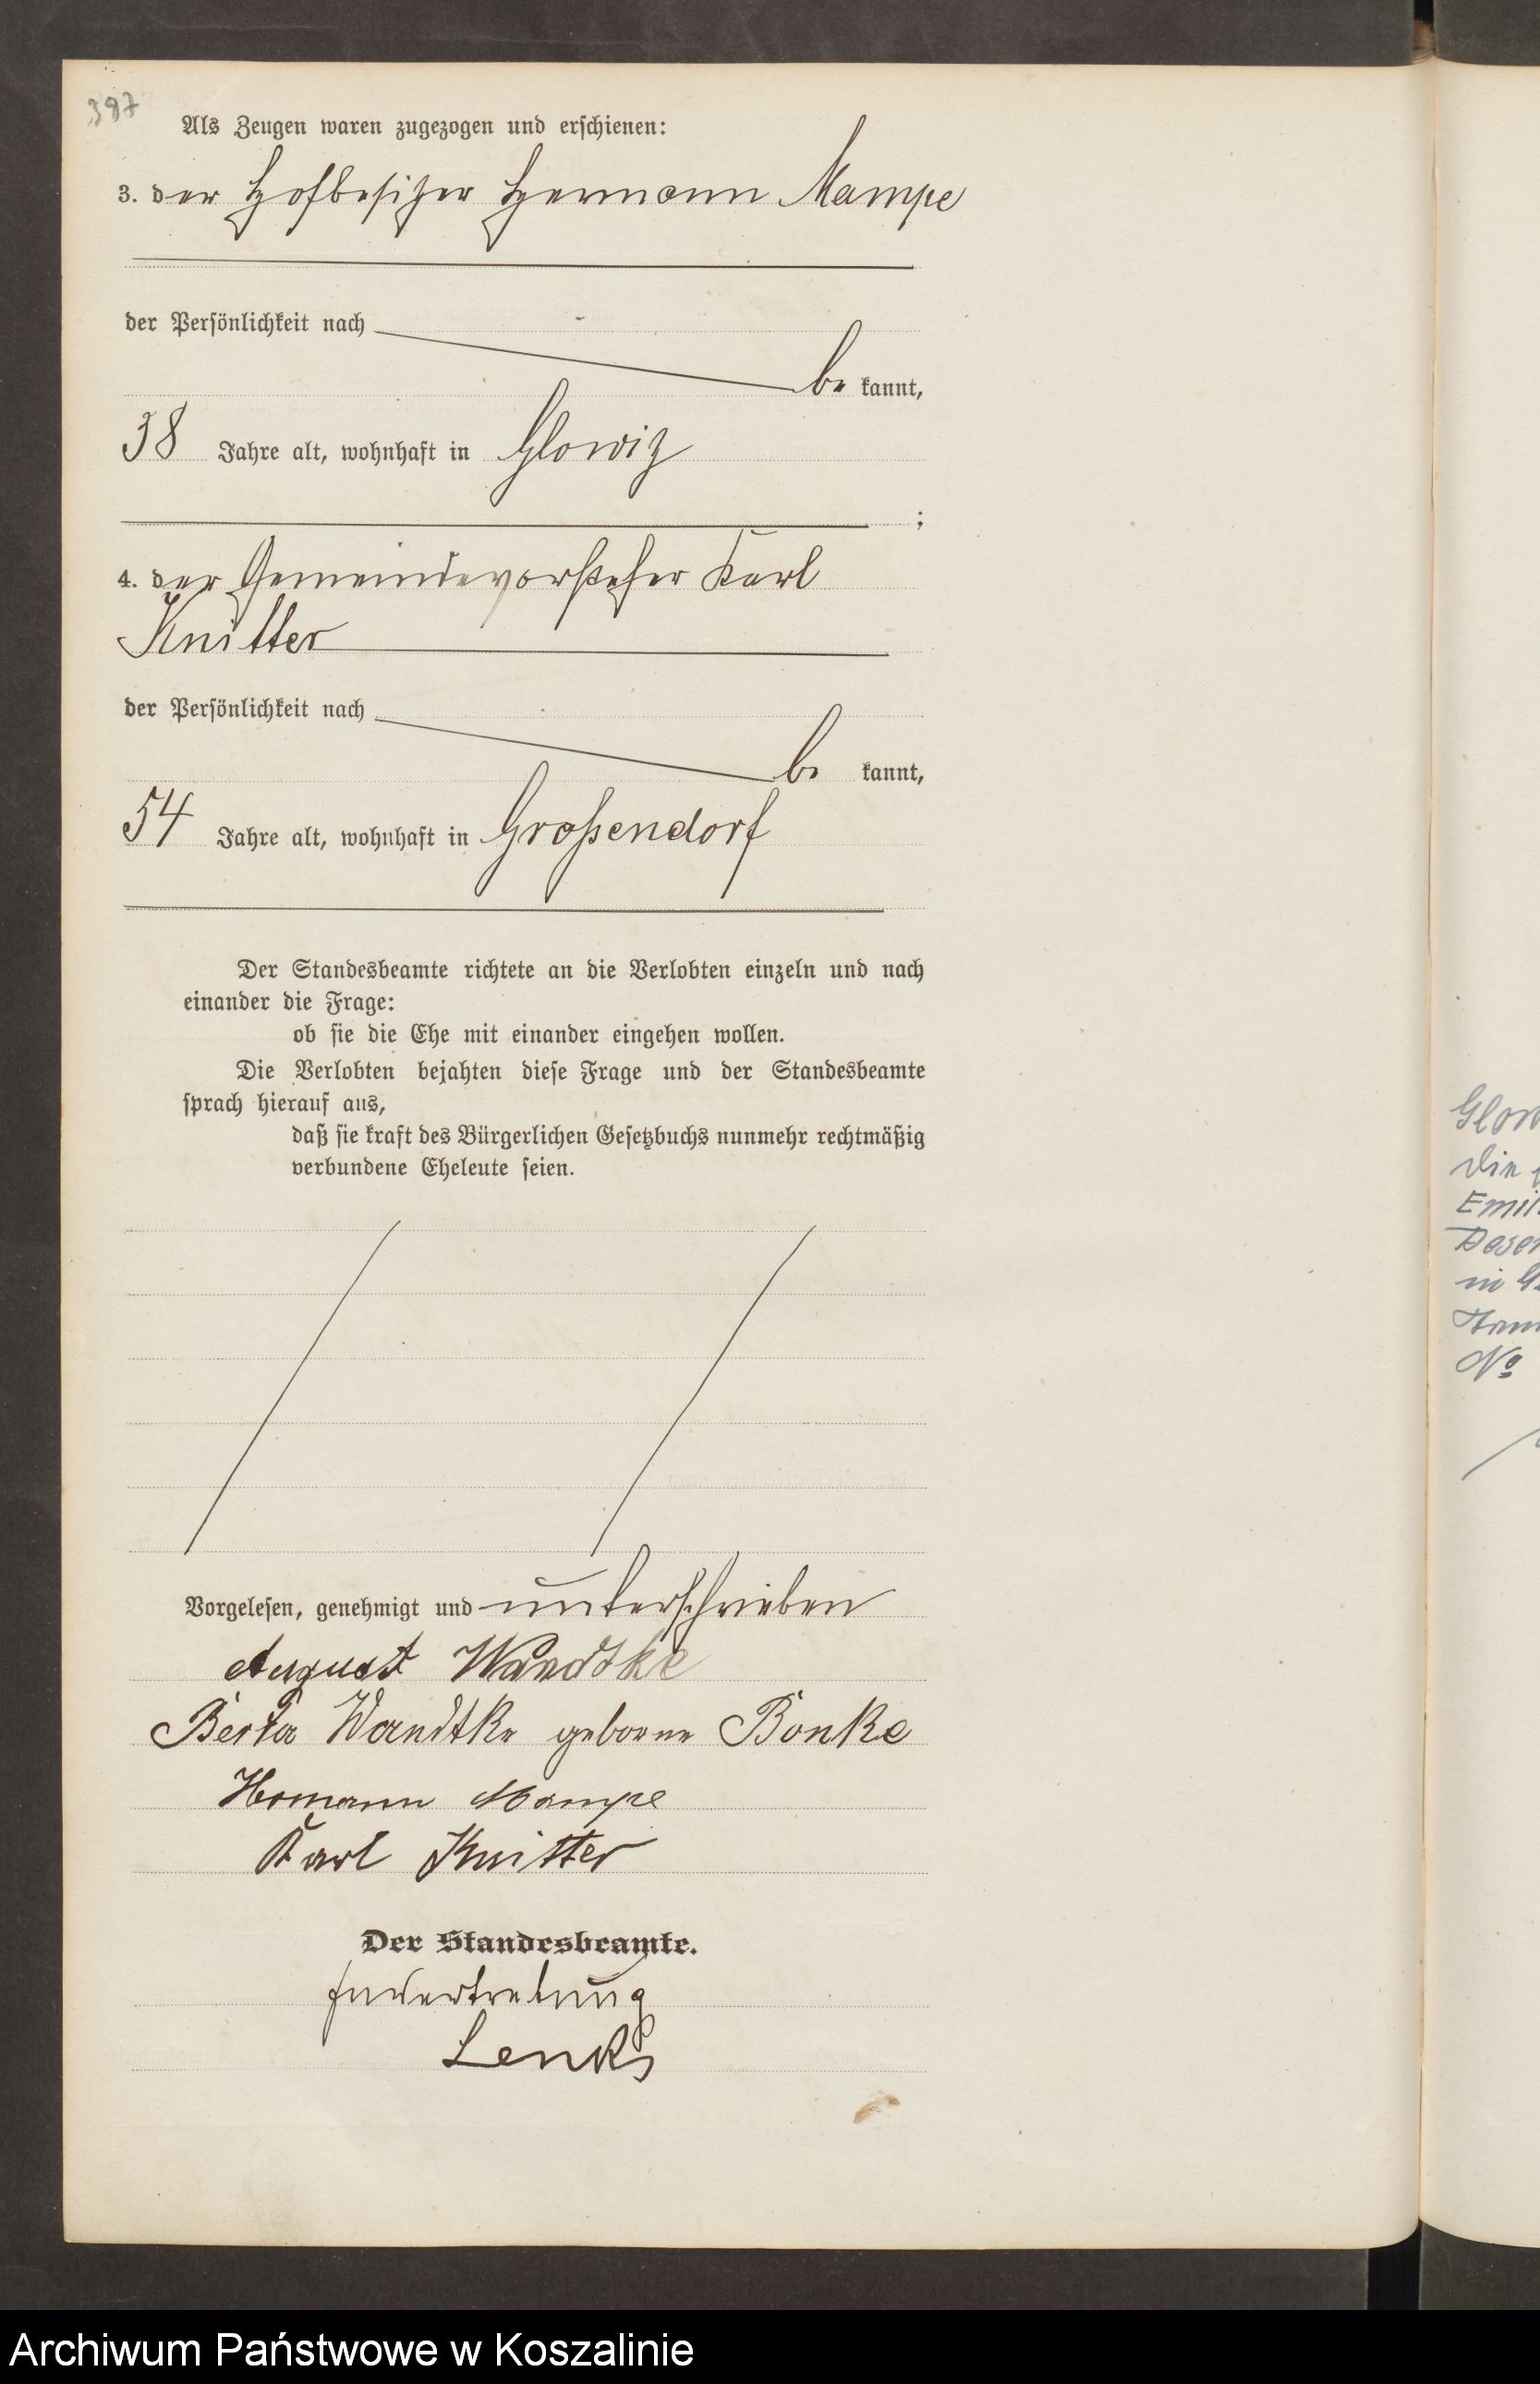 387
Als Zeugen waren zugezogen und erschienen:
3. der Hofbesitzer Hermann Mampe
der Persönlichkeit nach
be kannt,
38 Jahre alt, wohnhaft in Glowitz
;
4. der Gemeindevorsteher Karl
Knitter
der Persönlichkeit nach
be kannt,
54 Jahre alt, wohnhaft in Großendorf
Der Standesbeamte richtete an die Verlobten einzeln und nach
einander die Frage:
ob sie die Ehe mit einander eingehen wollen.
Die Verlobten bejahten diese Frage und der Standesbeamte
sprach hierauf aus,
daß sie kraft des Bürgerlichen Gesetzbuchs nunmehr rechtmäßig
verbundene Eheleute seien.
Vorgelesen, genehmigt und unterschrieben
August Wandtke
Berta Wandtke geborene Bonke
Hermann Mampe
Karl Knitter
Der Standesbeamte.
In Vertretung
Lenks
Die
Emil
in
No
Archiwum Państwowe w Koszalinie